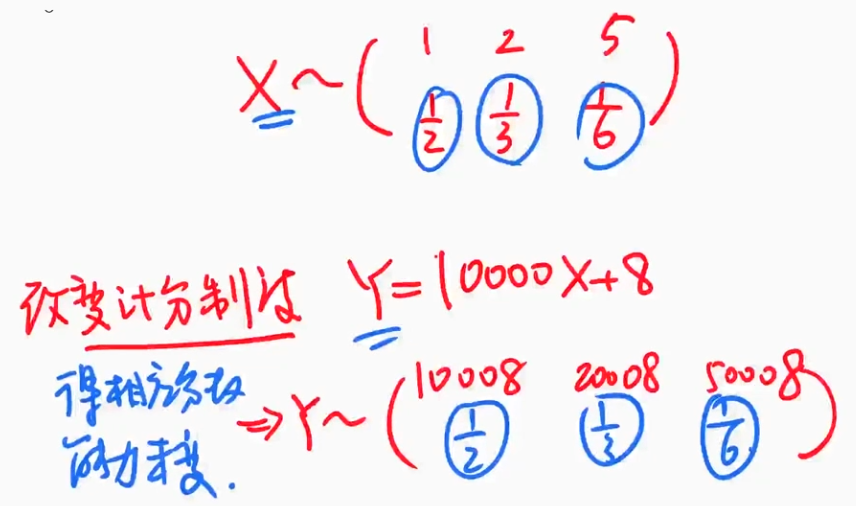 X ~ ( 1 2 5
1/2 1/3 1/6 )
改变计分制度 Y = 10000X+8
得相应分数
能力未变.
⇒ Y ~ ( 10008 20008 50008
1/2 1/3 1/6 )